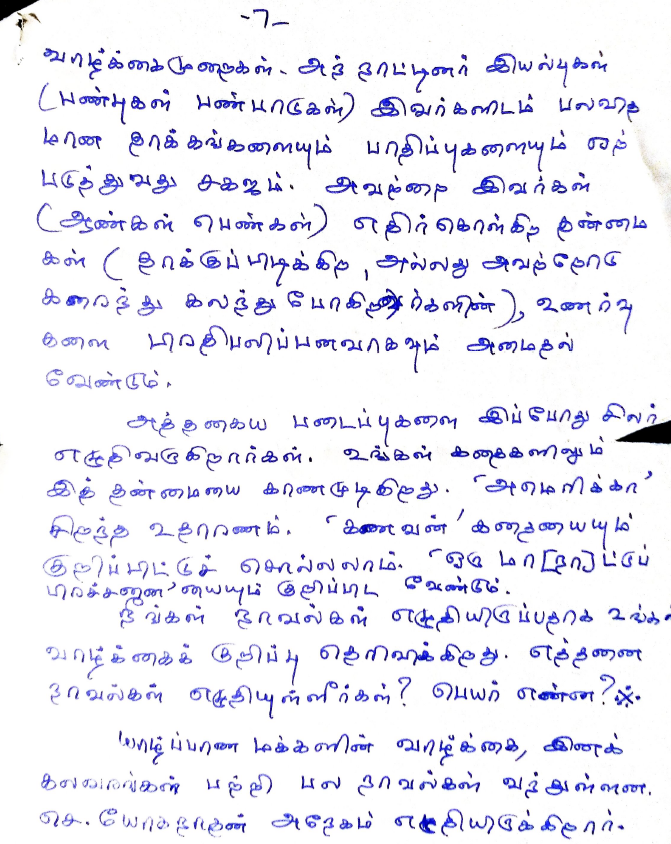 -7-
வாழ்க்கைமுறைகள். அந் நாட்டினர் இயல்புகள்
(பண்புகள் பண்பாடுகள்) இவர்களிடம் பலவித
மான தாக்கங்களையும் பாதிப்புகளையும் ஏற்
படுத்துவது சகஜம். அவற்றை இவர்கள்
(ஆண்கள் பெண்கள்) எதிர்கொள்கிற தன்மை
கள் (தாக்குப்பிடிக்கிற, அல்லது அவற்றோடு
கரைந்து கலந்து போகிறவர்களின்), உணர்வு
களை பிரதிபலிப்பனவாகவும் அமைதல்
வேண்டும்.
அத்தகைய படைப்புகளை இப்போது சிலர்
எழுதிவருகிறார்கள். உங்கள் கதைகளிலும்
இத் தன்மையை காணமுடிகிறது. 'அமெரிக்கா'
சிறந்த உதாரணம். 'கணவன்' கதையையும்
குறிப்பிட்டுச் சொல்லலாம். 'ஒரு மா[நா]ட்டுப்
பிரச்சனை'யையும் குறிப்பிட வேண்டும்.
நீங்கள் நாவல்கள் எழுதியிருப்பதாக உங்கள்
வாழ்க்கைக் குறிப்பு தெரிவிக்கிறது. எத்தனை
நாவல்கள் எழுதியுள்ளீர்கள்? பெயர் என்ன?※
யாழ்ப்பாண மக்களின் வாழ்க்கை, இனக்
கலவரங்கள் பற்றி பல நாவல்கள் வந்துள்ளன.
செ. யோகநாதன் அநேகம் எழுதியிருக்கிறார்.